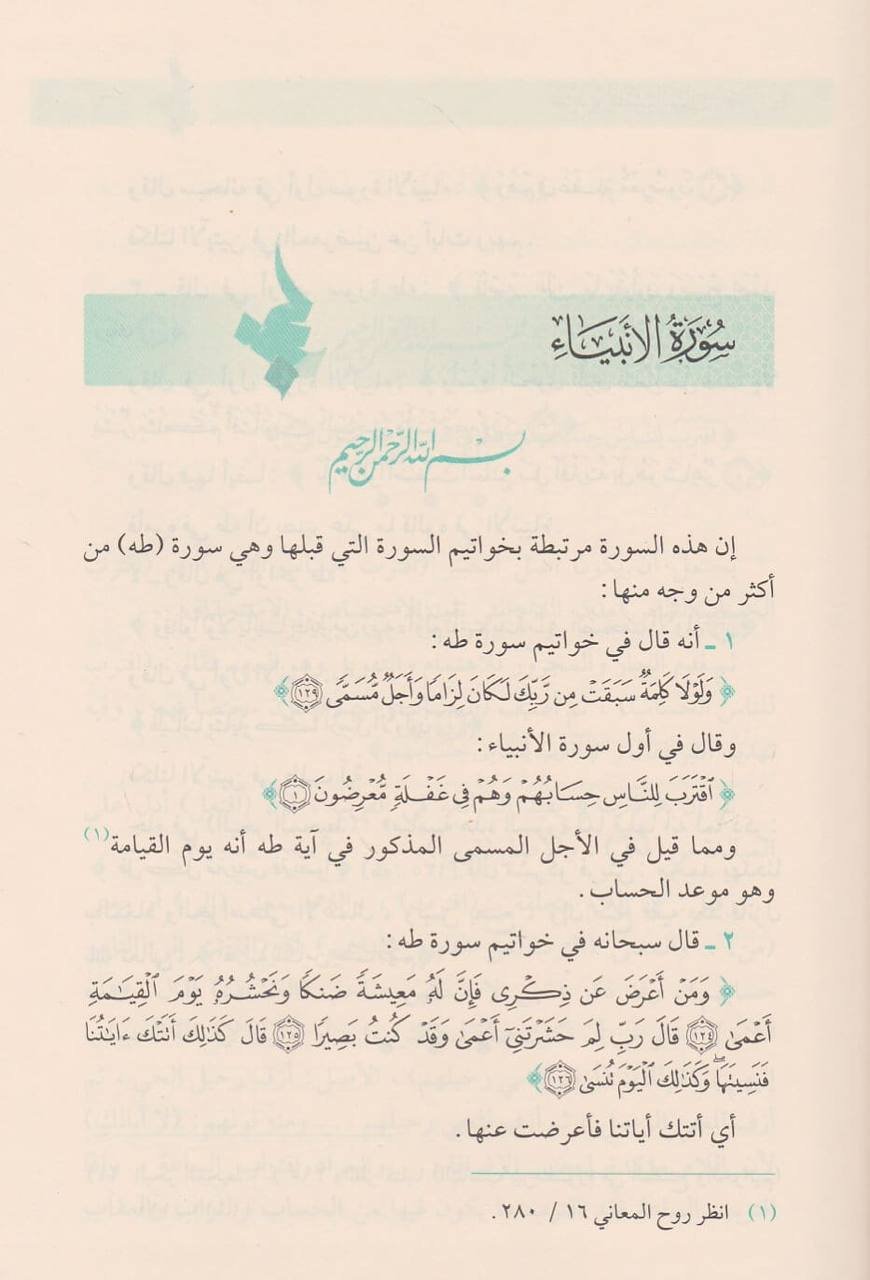 سُورَةُ الأَنبيَاءِ
بسم الله الرحمن الرحيم
إن هذه السورة مرتبطة بخواتيم السورة التي قبلها وهي سورة (طه) من
أكثر من وجه منها:
١ ـ أنه قال في خواتيم سورة طه:
﴿ وَلَوْلَا كَلِمَةٌ سَبَقَتْ مِن رَّبِّكَ لَكَانَ لِزَامًا وَأَجَلٌ مُّسَمًّى ١٢٩ ﴾
وقال في أول سورة الأنبياء:
﴿ ٱقْتَرَبَ لِلنَّاسِ حِسَابُهُمْ وَهُمْ فِى غَفْلَةٍ مُّعْرِضُونَ ١ ﴾
ومما قيل في الأجل المسمى المذكور في آية طه أنه يوم القيامة(١)
وهو موعد الحساب.
٢ ـ قال سبحانه في خواتيم سورة طه:
﴿ وَمَنْ أَعْرَضَ عَن ذِكْرِى فَإِنَّ لَهُۥ مَعِيشَةً ضَنكًا وَنَحْشُرُهُۥ يَوْمَ ٱلْقِيَٰمَةِ
أَعْمَىٰ ١٢٤ قَالَ رَبِّ لِمَ حَشَرْتَنِىٓ أَعْمَىٰ وَقَدْ كُنتُ بَصِيرًا ١٢٥ قَالَ كَذَٰلِكَ أَتَتْكَ ءَايَٰتُنَا
فَنَسِيتَهَا ۖ وَكَذَٰلِكَ ٱلْيَوْمَ تُنسَىٰ ١٢٦ ﴾
أي أتتك أياتنا فأعرضت عنها.
(١) انظر روح المعاني ١٦ / ٢٨٠.